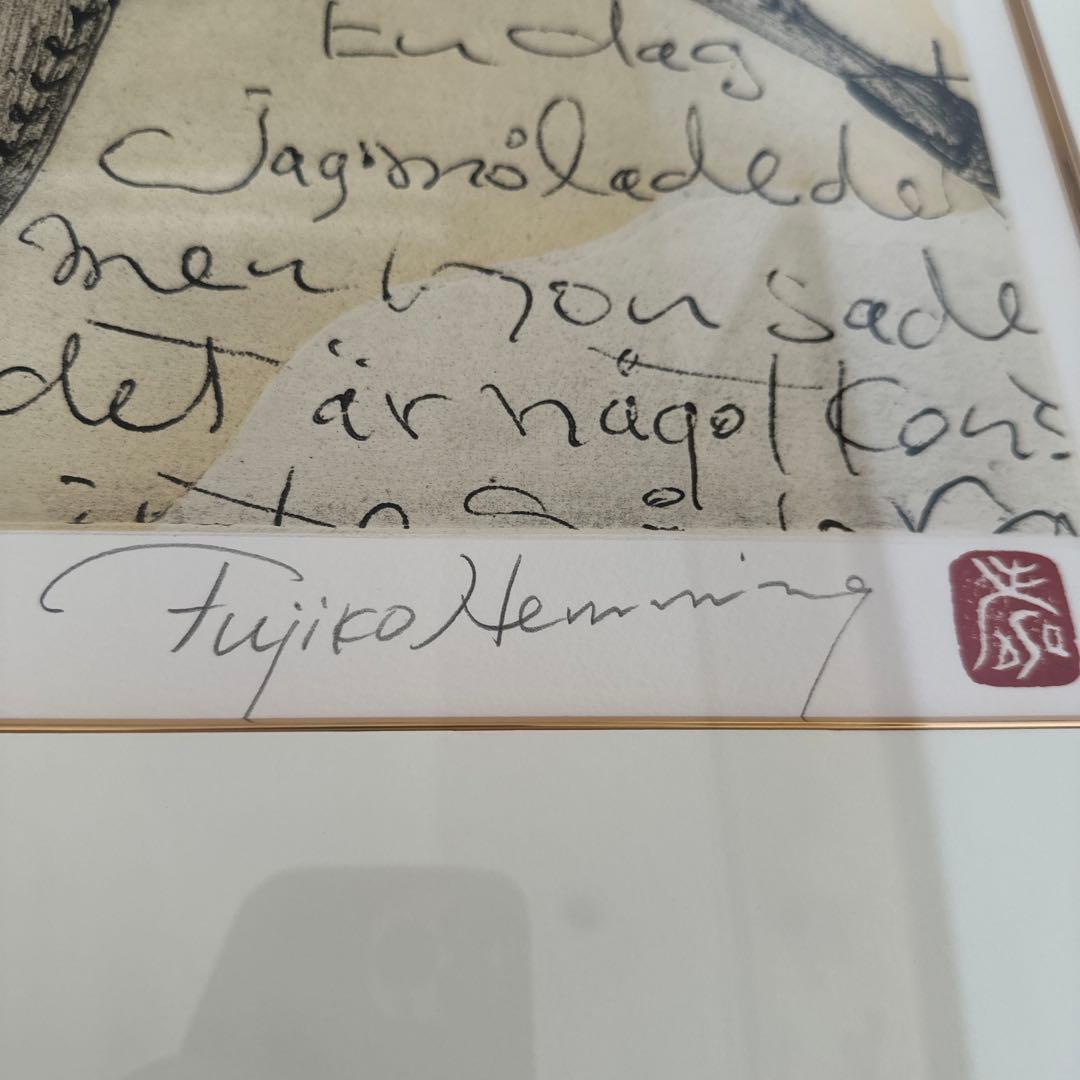 En dag
Jag målade de
men hon sade
det är något
Fujiko Hemming